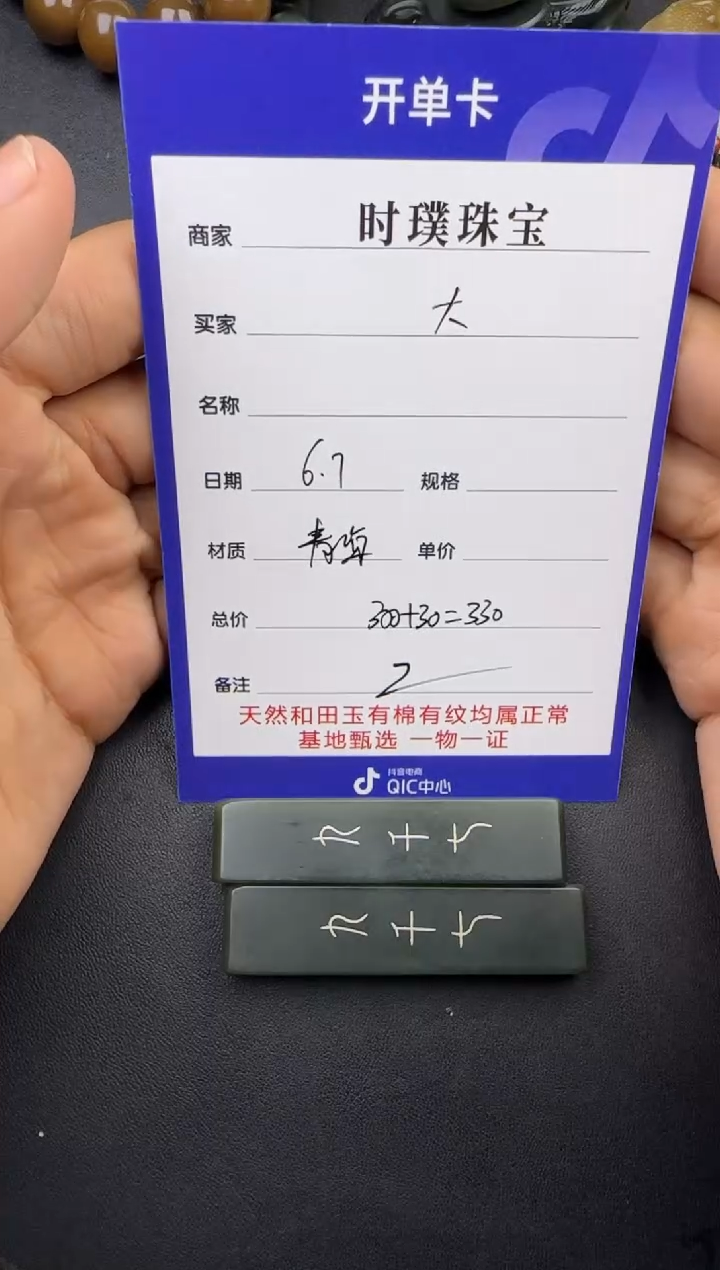 开单卡
商家 时璞珠宝
买家 大
名称
日期 6.7 规格
材质 青海 单价
总价 300+30=330
备注 2
天然和田玉有棉有纹均属正常
基地甄选 一物一证
抖音电商
QIC中心
九千七
九千七